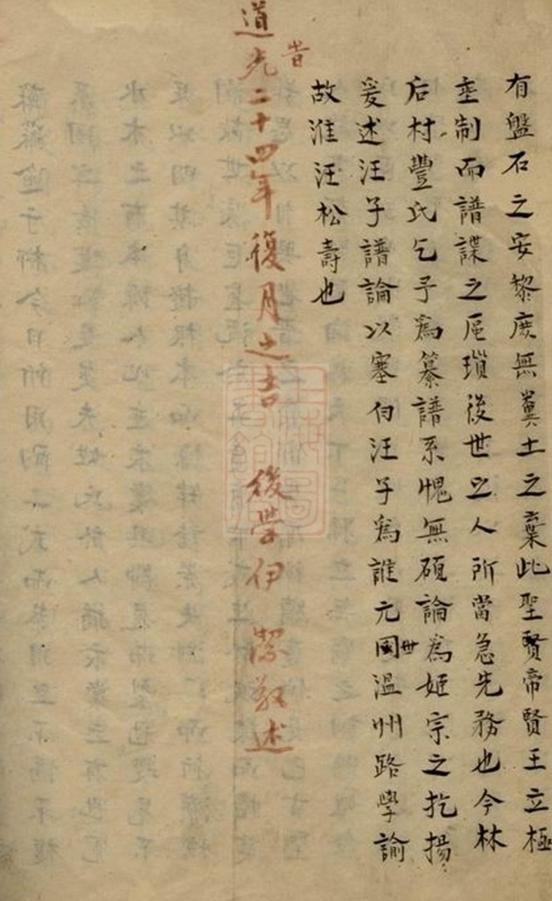 有盤石之安黎庶無糞土之棄此聖賢帝賢王立極
垂制而譜諜之厖瑣後世之人所當急先務也今林
后村豐氏乞予為纂譜系愧無碩論為姬宗之扢揚
爰述汪子譜論以塞白汪子為誰元國世溫州路學諭
故淮汪松壽也
旹
道光二十四年復月之吉 後學伊 敬述